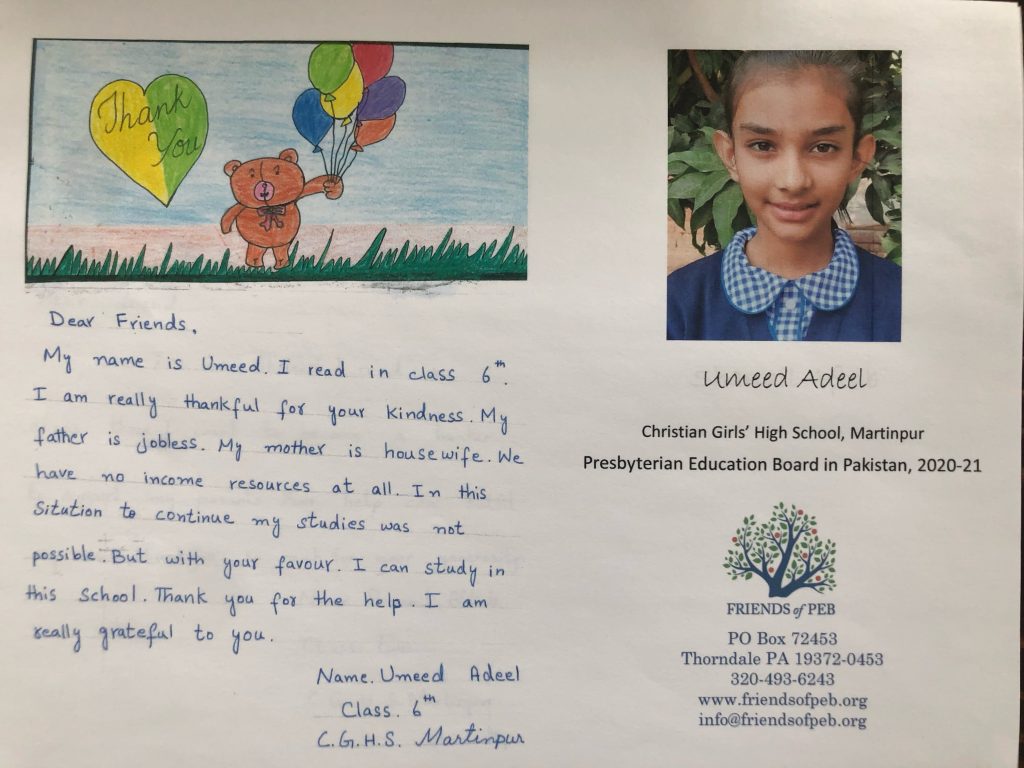 Thank
You
Dear Friends,
My name is Umeed. I read in class 6th.
I am really thankful for your kindness. My
father is jobless. My mother is housewife. We
have no income resources at all. In this
Sitution to continue my studies was not
possible. But with your favour. I can study in
this School. Thank you for the help. I am
really grateful to you.
Name. Umeed Adeel
Class. 6th
C.G.H.S. Martinpur
Umeed Adeel
Christian Girls' High School, Martinpur
Presbyterian Education Board in Pakistan, 2020-21
FRIENDS of PEB
PO Box 72453
Thorndale PA 19372-0453
320-493-6243
www.friendsofpeb.org
info@friendsofpeb.org